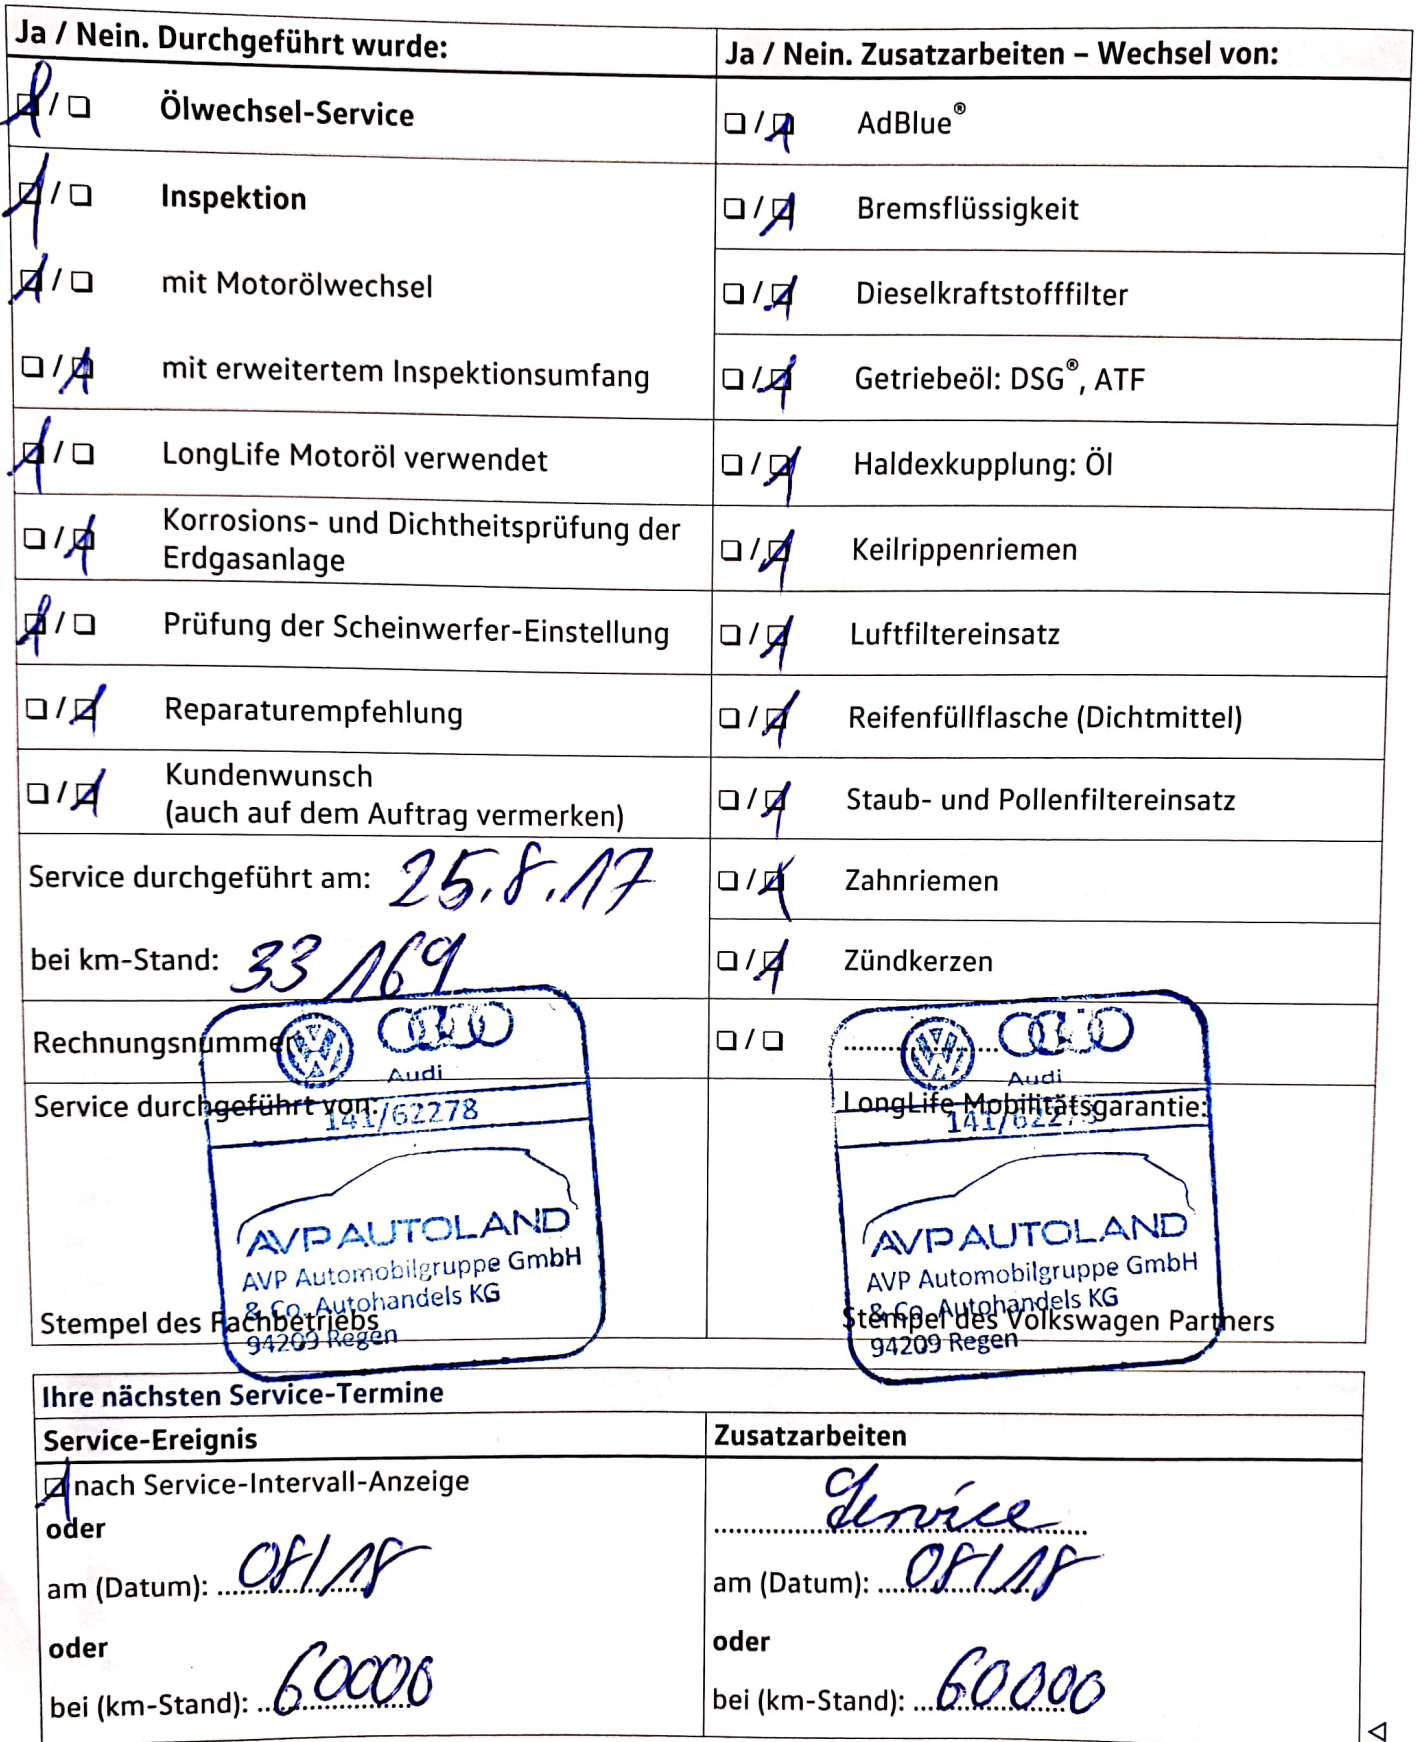 Ja / Nein. Durchgeführt wurde:
Ölwechsel-Service
Inspektion
mit Motorölwechsel
mit erweitertem Inspektionsumfang
LongLife Motoröl verwendet
Korrosions- und Dichtheitsprüfung der
Erdgasanlage
Prüfung der Scheinwerfer-Einstellung
Reparaturempfehlung
Kundenwunsch
(auch auf dem Auftrag vermerken)
Service durchgeführt am: 25.8.17
bei km-Stand: 33 169
Rechnungsnummer
Service durchgeführt von:
Audi
141/62278
AVP AUTOLAND
AVP Automobilgruppe GmbH
& Co. Autohandels KG
94209 Regen
Stempel des Fachbetriebs
Ja / Nein. Zusatzarbeiten – Wechsel von:
AdBlue®
Bremsflüssigkeit
Dieselkraftstofffilter
Getriebeöl: DSG®, ATF
Haldexkupplung: Öl
Keilrippenriemen
Luftfiltereinsatz
Reifenfüllflasche (Dichtmittel)
Staub- und Pollenfiltereinsatz
Zahnriemen
Zündkerzen
LongLife Mobilitätsgarantie:
Audi
141/62278
AVP AUTOLAND
AVP Automobilgruppe GmbH
& Co. Autohandels KG
94209 Regen
Stempel des Volkswagen Partners
Ihre nächsten Service-Termine
Service-Ereignis
nach Service-Intervall-Anzeige
oder
am (Datum): 08/18
oder
bei (km-Stand): 60000
Zusatzarbeiten
Service
am (Datum): 08/18
oder
bei (km-Stand): 60000